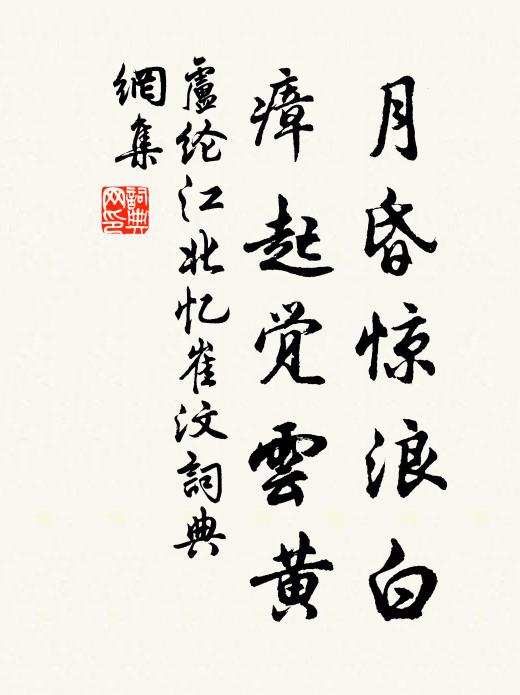 月昏惊浪白
瘴起觉雲黄
盧纶江北忆崔汶詞典
網集
詞典
网印